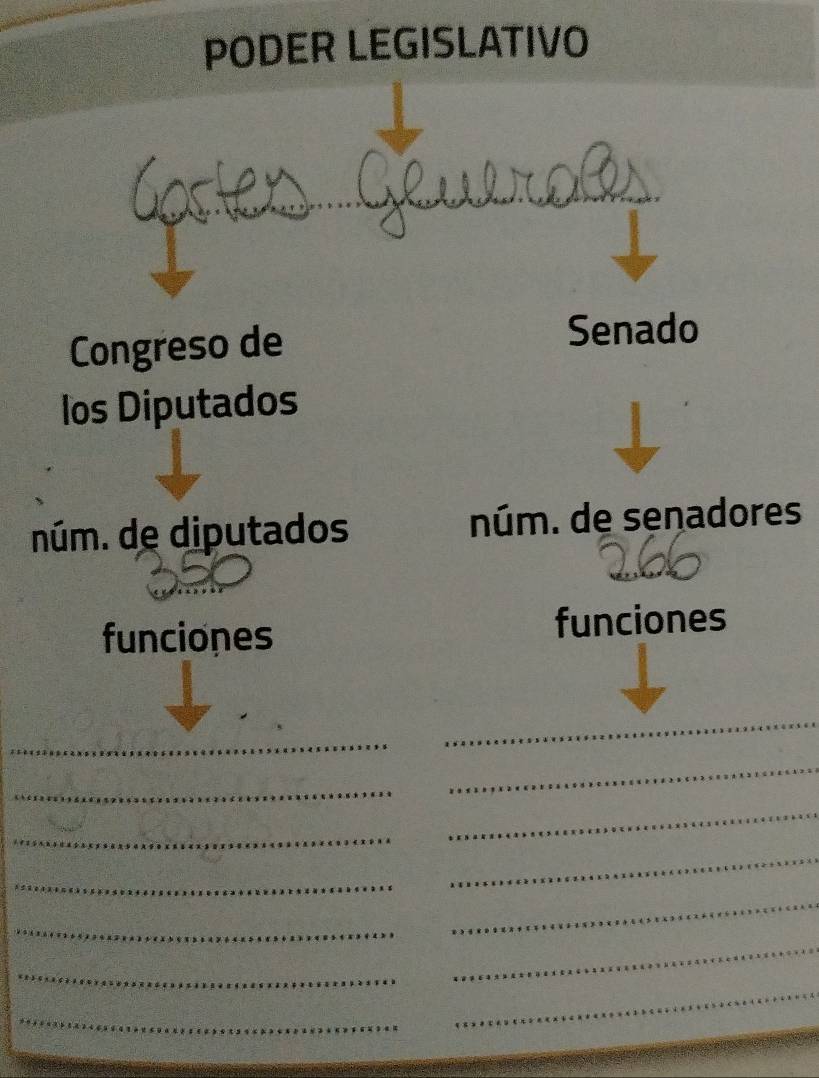 PODER LEGISLATIVO
Cortes Generales
Congreso de
los Diputados
Senado
núm. de diputados
350
núm. de senadores
266
funciones
funciones